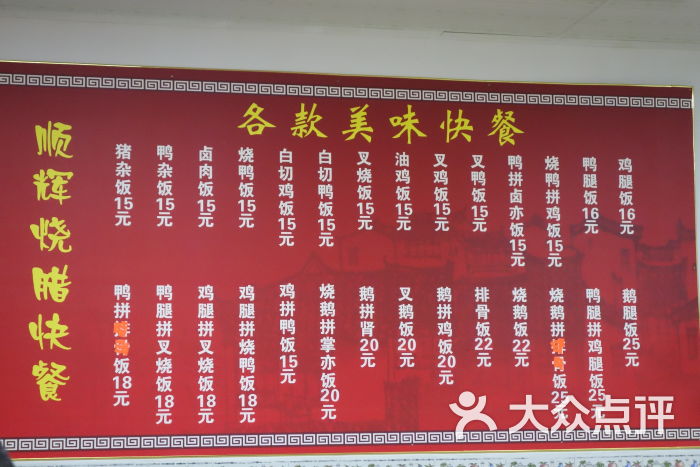 各款美味快餐
顺辉烧腊快餐
猪杂饭15元
鸭杂饭15元
卤肉饭15元
烧鸭饭15元
白切鸡饭15元
白切鸭饭15元
叉烧饭15元
油鸡饭15元
叉鸡饭15元
叉鸭饭15元
鸭拼卤亦饭15元
烧鸭拼鸡饭15元
鸭腿饭16元
鸡腿饭16元
鸭拼排骨饭18元
鸭腿拼叉烧饭18元
鸡腿拼叉烧饭18元
鸡腿拼烧鸭饭18元
鸡拼鸭饭15元
烧鹅拼掌亦饭20元
鹅拼肾20元
叉鹅饭20元
鹅拼鸡饭20元
排骨饭22元
烧鹅饭22元
烧鹅拼排骨饭25元
鸭腿拼鸡腿饭25元
鹅腿饭25元
大众点评